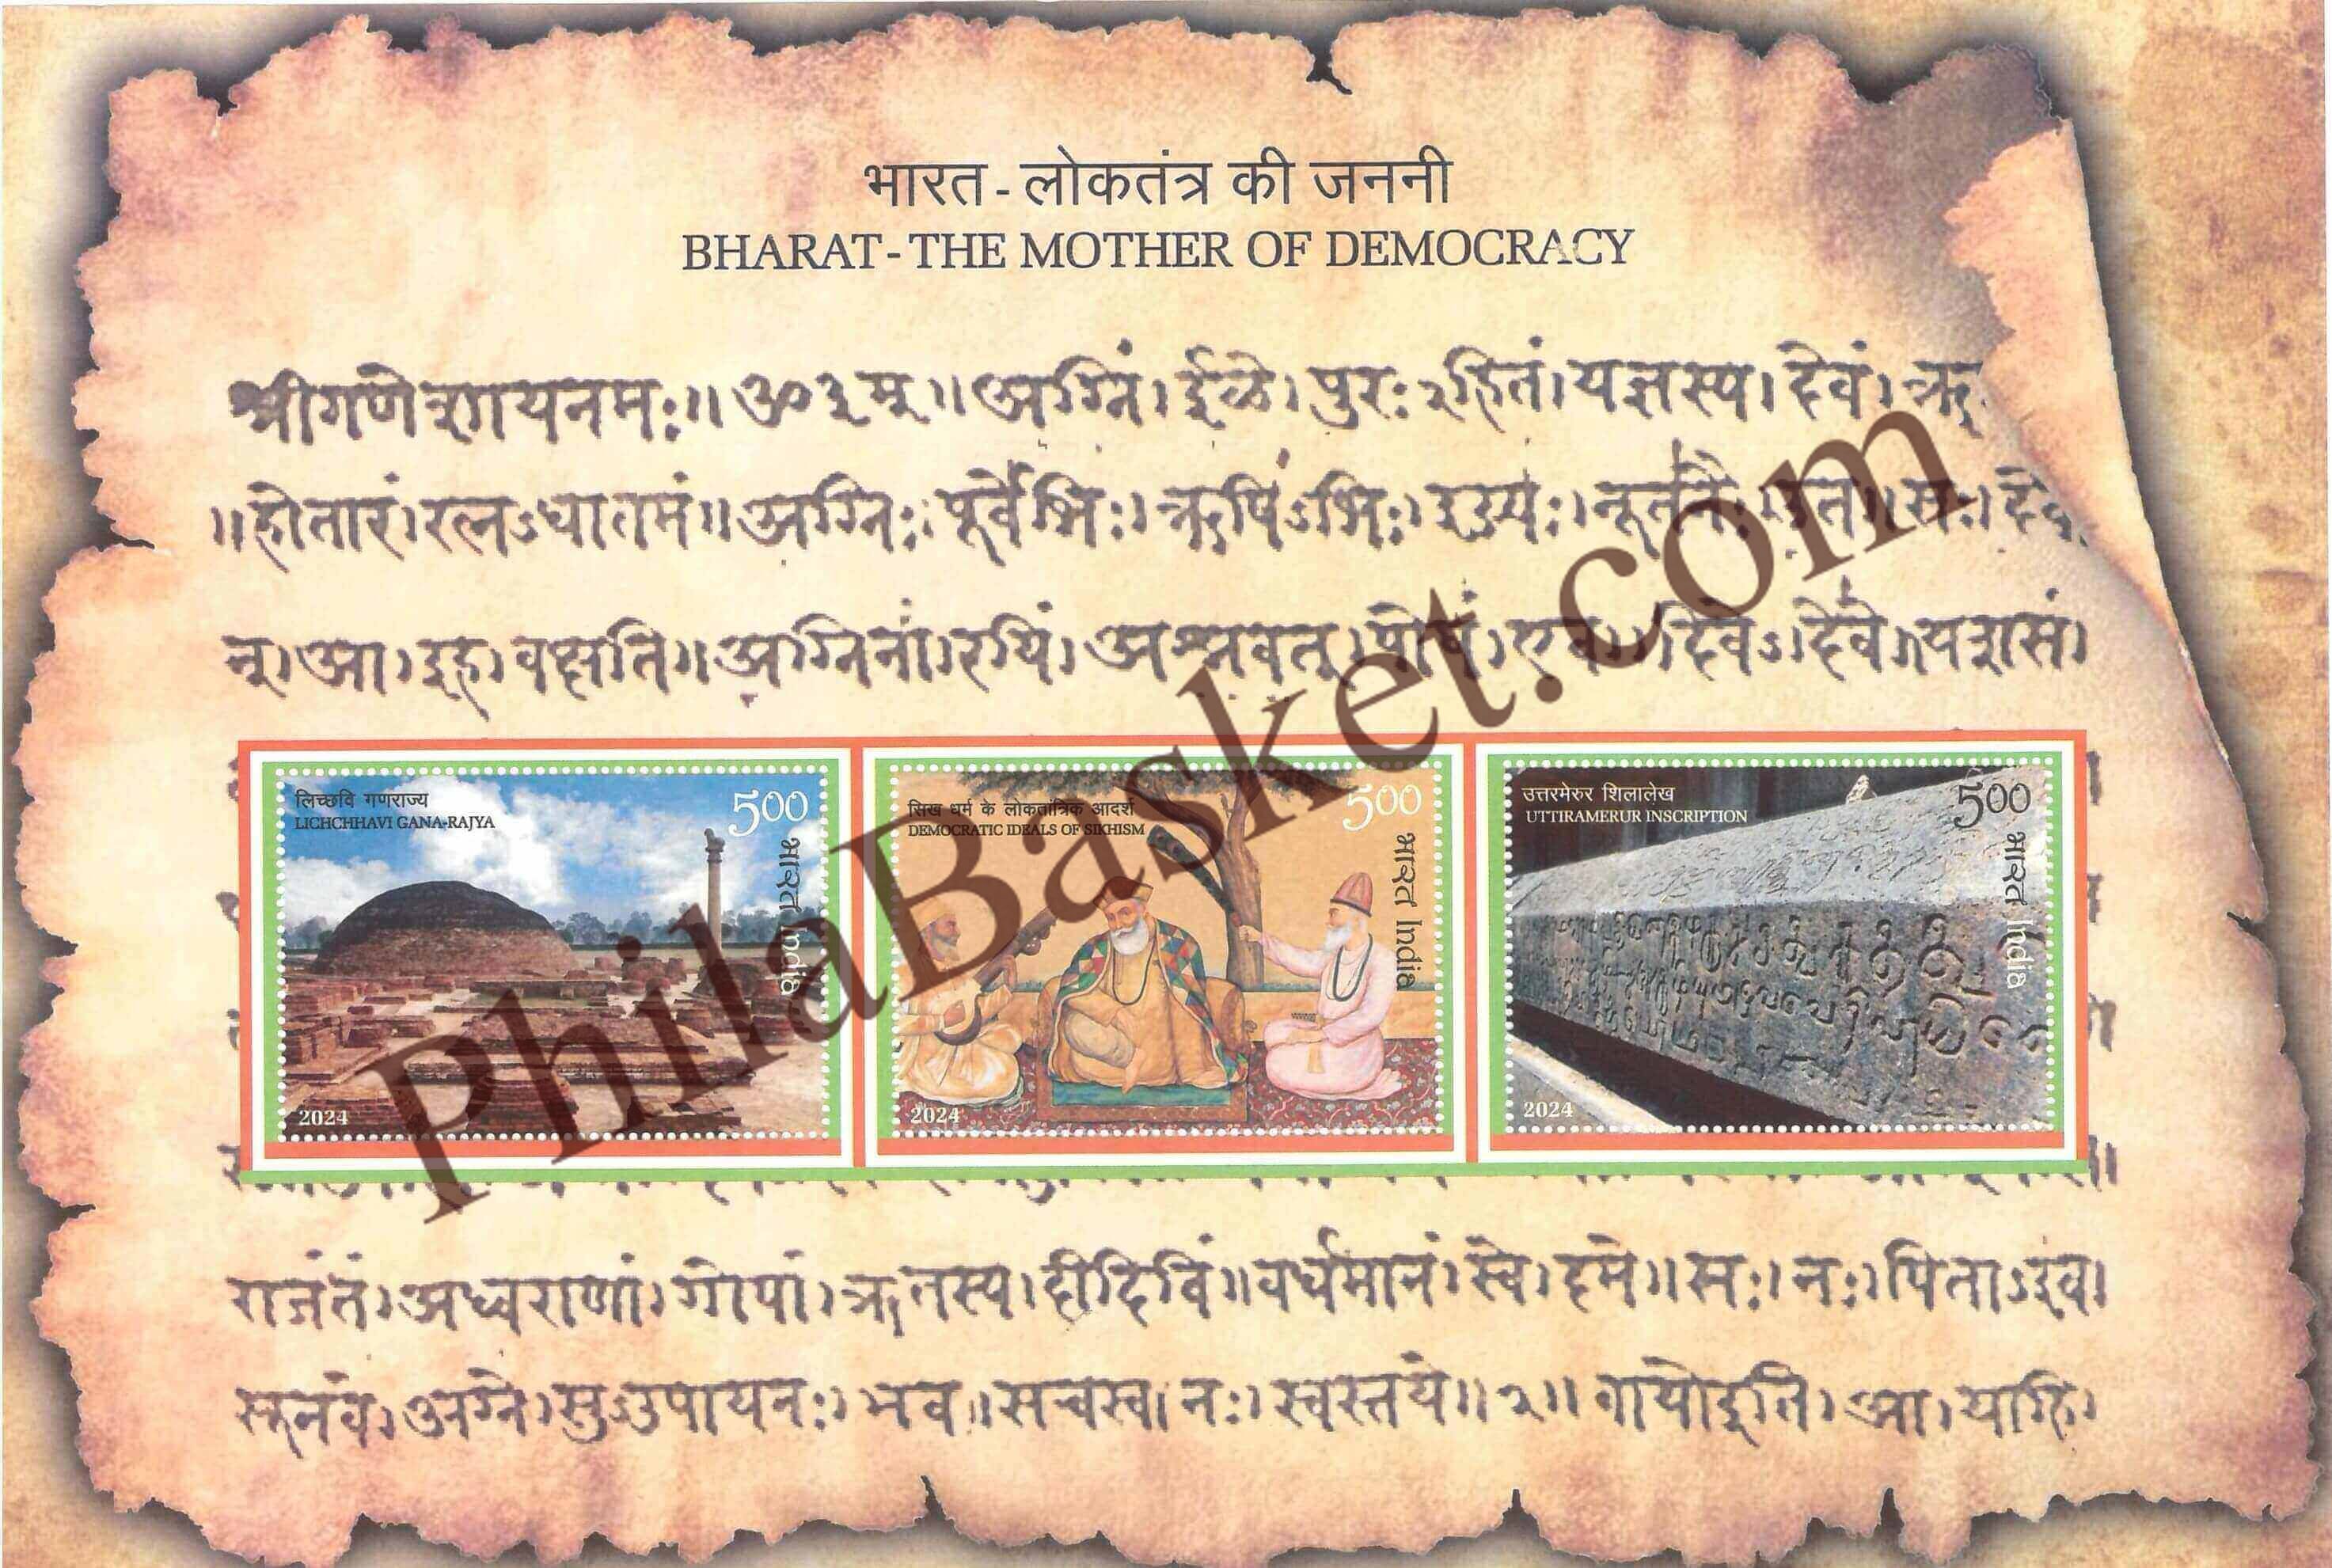 भारत - लोकतंत्र की जननी
BHARAT - THE MOTHER OF DEMOCRACY
श्रीगणेशायनमः॥ ॐ३म्॥ अग्निं। ईळे। पुरःऽहितं। यज्ञस्य। देवं। ऋ
॥होतारं। रत्नऽधातमं॥ अग्निः। पूर्वेभिः। ऋषिऽभिः। ईड्यः। नूतनैः। उत॥ सः। दे
न्। आ। इह। वक्षति॥ अग्निना। रयिं। अश्नवत्। पोषं। एव। दिवेऽ। दिवे। यशसं।
लिच्छवि गणराज्य
LICHCHHAVI GANA-RAJYA
500
भारत India
2024
सिख धर्म के लोकतांत्रिक आदर्श
DEMOCRATIC IDEALS OF SIKHISM
500
भारत India
2024
उत्तरमेरुर शिलालेख
UTTIRAMERUR INSCRIPTION
500
भारत India
2024
राजंतं। अध्वराणां। गोपां। ऋतस्य। दीदिविं॥ वर्धमानं। स्वे। दमे॥ सः। नः। पिताऽइव।
सूनवे। अग्ने। सुऽउपायनः। भव॥ सचस्व। नः। स्वस्तये॥ २॥ वायोइति। आ। याहि।
PhilaBasket.com